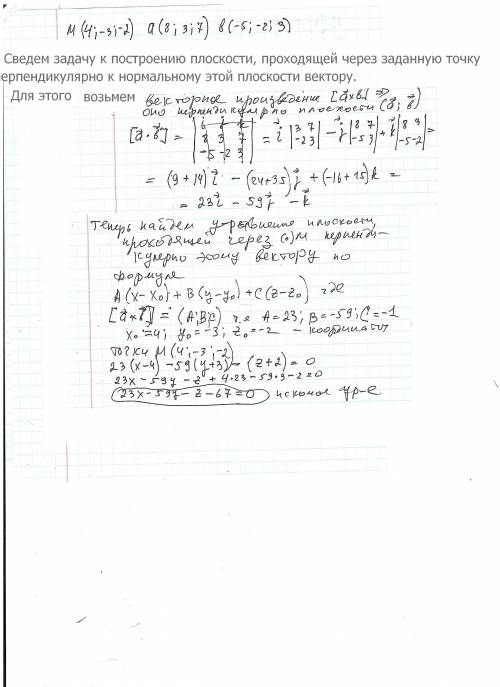 М (4;-3;-2) a(8; 3; 7) в(-5; -2; 3)
Сведем задачу к построению плоскости, проходящей через заданную точку
ерпендикулярно к нормальному этой плоскости вектору.
Для этого возьмем векторное произведение [a⃗×b⃗] ⇒
оно перпендикулярно плоскости (a⃗; b⃗)
[a⃗·b⃗] = |i j k; 8 3 7; -5 -2 3| = i⃗ |3 7; -2 3| - j⃗ |8 7; -5 3| + k⃗ |8 3; -5 -2| =
= (9+14)i⃗ - (24+35)j⃗ + (-16+15)k⃗ =
= 23i⃗ - 59j⃗ - k⃗
Теперь найдем ур-внение плоскости,
проходящей через (·) М перпенди-
кулярно этому вектору по
формуле
A(x-x₀) + B(y-y₀) + C(z-z₀) где
[a⃗×b⃗] = (A;B;C) т.е A=23; B=-59; C=-1
x₀=4; y₀=-3; z₀=-2 - координаты
точки М(4;-3;-2)
23(x-4) -59(y+3) - (z+2) = 0
23x-59y-z+4·23-59·3-2=0
23x-59y-z-67=0 искомое ур-е